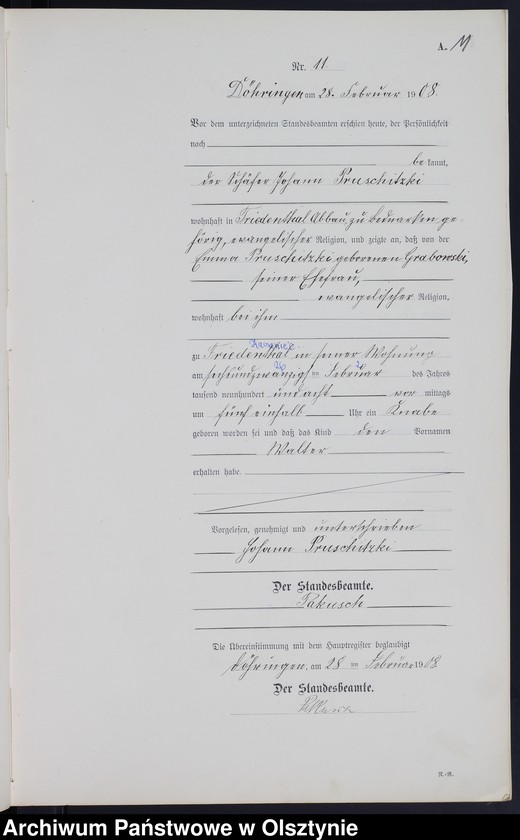 A. 11
Nr. 11
Döhringen am 28. Februar 1908.
Vor dem unterzeichneten Standesbeamten erschien heute, der Persönlichkeit
nach
bekannt,
der Schäfer Johann Pruschitzki
wohnhaft in Friedenthal Abbau, zu Bednarken ge-
hörig, evangelischer Religion, und zeigte an, daß von der
Emma Pruschitzki geborenen Grabowski,
seiner Ehefrau,
evangelischer Religion,
wohnhaft bei ihm
zu Friedenthal in seiner Wohnung
am sechsundzwanzigsten Februar des Jahres
26 2
tausend neunhundert und acht vor mittags
um fünf einhalb Uhr ein Knabe
geboren worden sei und daß das Kind den Vornamen
Walter
erhalten habe.
Vorgelesen, genehmigt und unterschrieben
Johann Pruschitzki
Der Standesbeamte.
Pakusch
Die Übereinstimmung mit dem Hauptregister beglaubigt
Döhringen, am 28 ten Februar 1908
Der Standesbeamte.
R.-R.
Archiwum Państwowe w Olsztynie